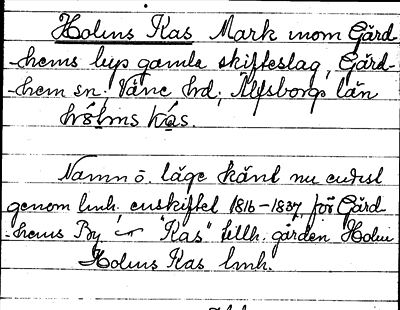 Holms Kas Mark inom Gård
-hems bys gamla skifteslag, Gård-
-hem sn; Väne hd; Älfsborgs län
hólms kás.
Namn o. läge känt nu endast
genom lmh. enskiftet 1816-1837, för Gård
-hems By "Kas" tillh. gården Holm
Holms Kas lmh.